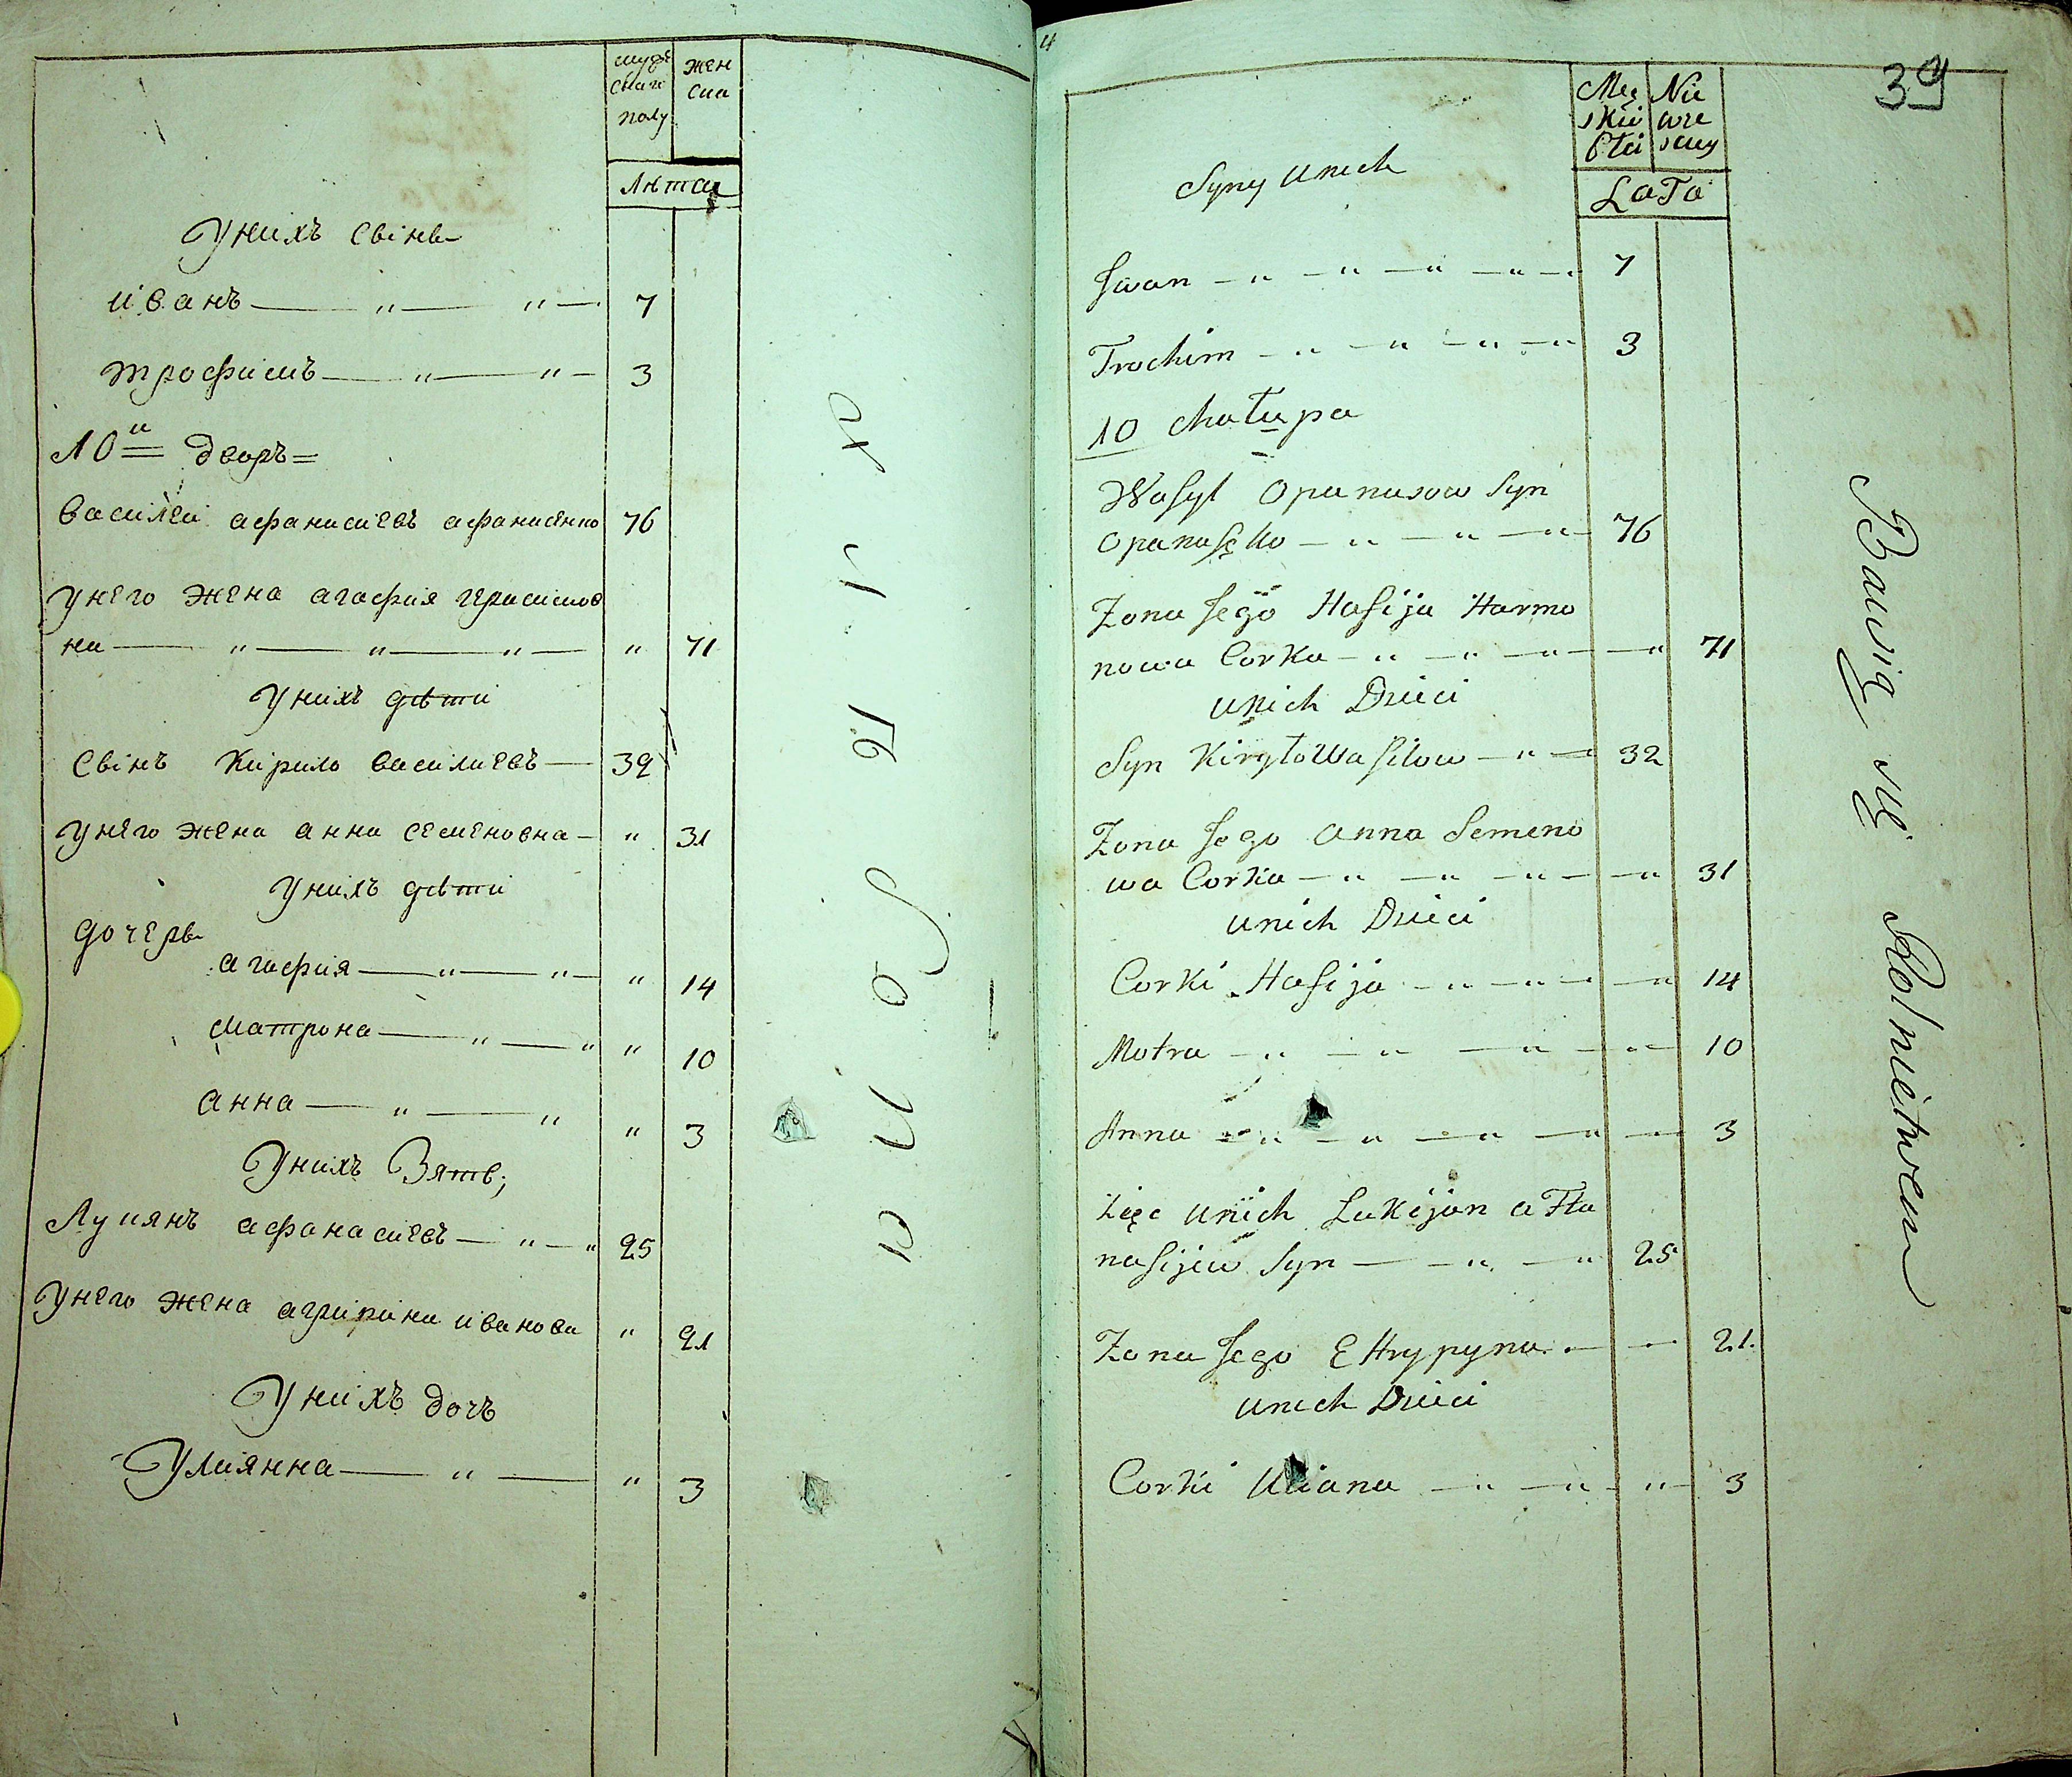 мужескаго полу
женска
Лѣта
У нихъ свінь
иванъ — " — " — 7
трофимъ — " — " — 3
10й дворъ
Василеи афанасиевъ афанасенко 76
У него жена агафия герасимов
на — " — " — " — " 71
У нихъ дѣти
Свінъ Кирило василиевъ — 32
У него жена анна семеновна — " 31
У нихъ дѣти
дочерь
агафия — " — " — " 14
матрона — " — " " 10
анна — " — " " 3
У нихъ Зять;
Лукянъ афанасиевъ — " — " 25
У него жена агрипина иванова " 21
У нихъ дочъ
Улиянна — " — " 3
4
39
Męskii Płci
Niewescuy
LaTa
Syny unich
Jwan — " — " — " — " — 7
Trochim — " — " — " — " 3
10 chałupa
Wasyl Opanasow Syn
Opanasęko — " — " — " — 76
Zona Jego Hasija Harmo
nowa Corka — " — " — " — " 71
unich Dzieci
Syn Kiryło Wasilow — " — 32
Zona Jego Anna Semeno
wa Corka — " — " — " — " 31
unich Dzieci
Corki Hasija — " — " — " 14
Motra — " — " — " — " — 10
Anna — " — " — " — " — 3
Zięc unich Lukijan aFta
nasijew Syn — — " — " 25
Zona Jego EHrypyna — — 21.
unich Dzieci
Corki Uliana — " — " — " — 3
Bawią się Rolnictwem